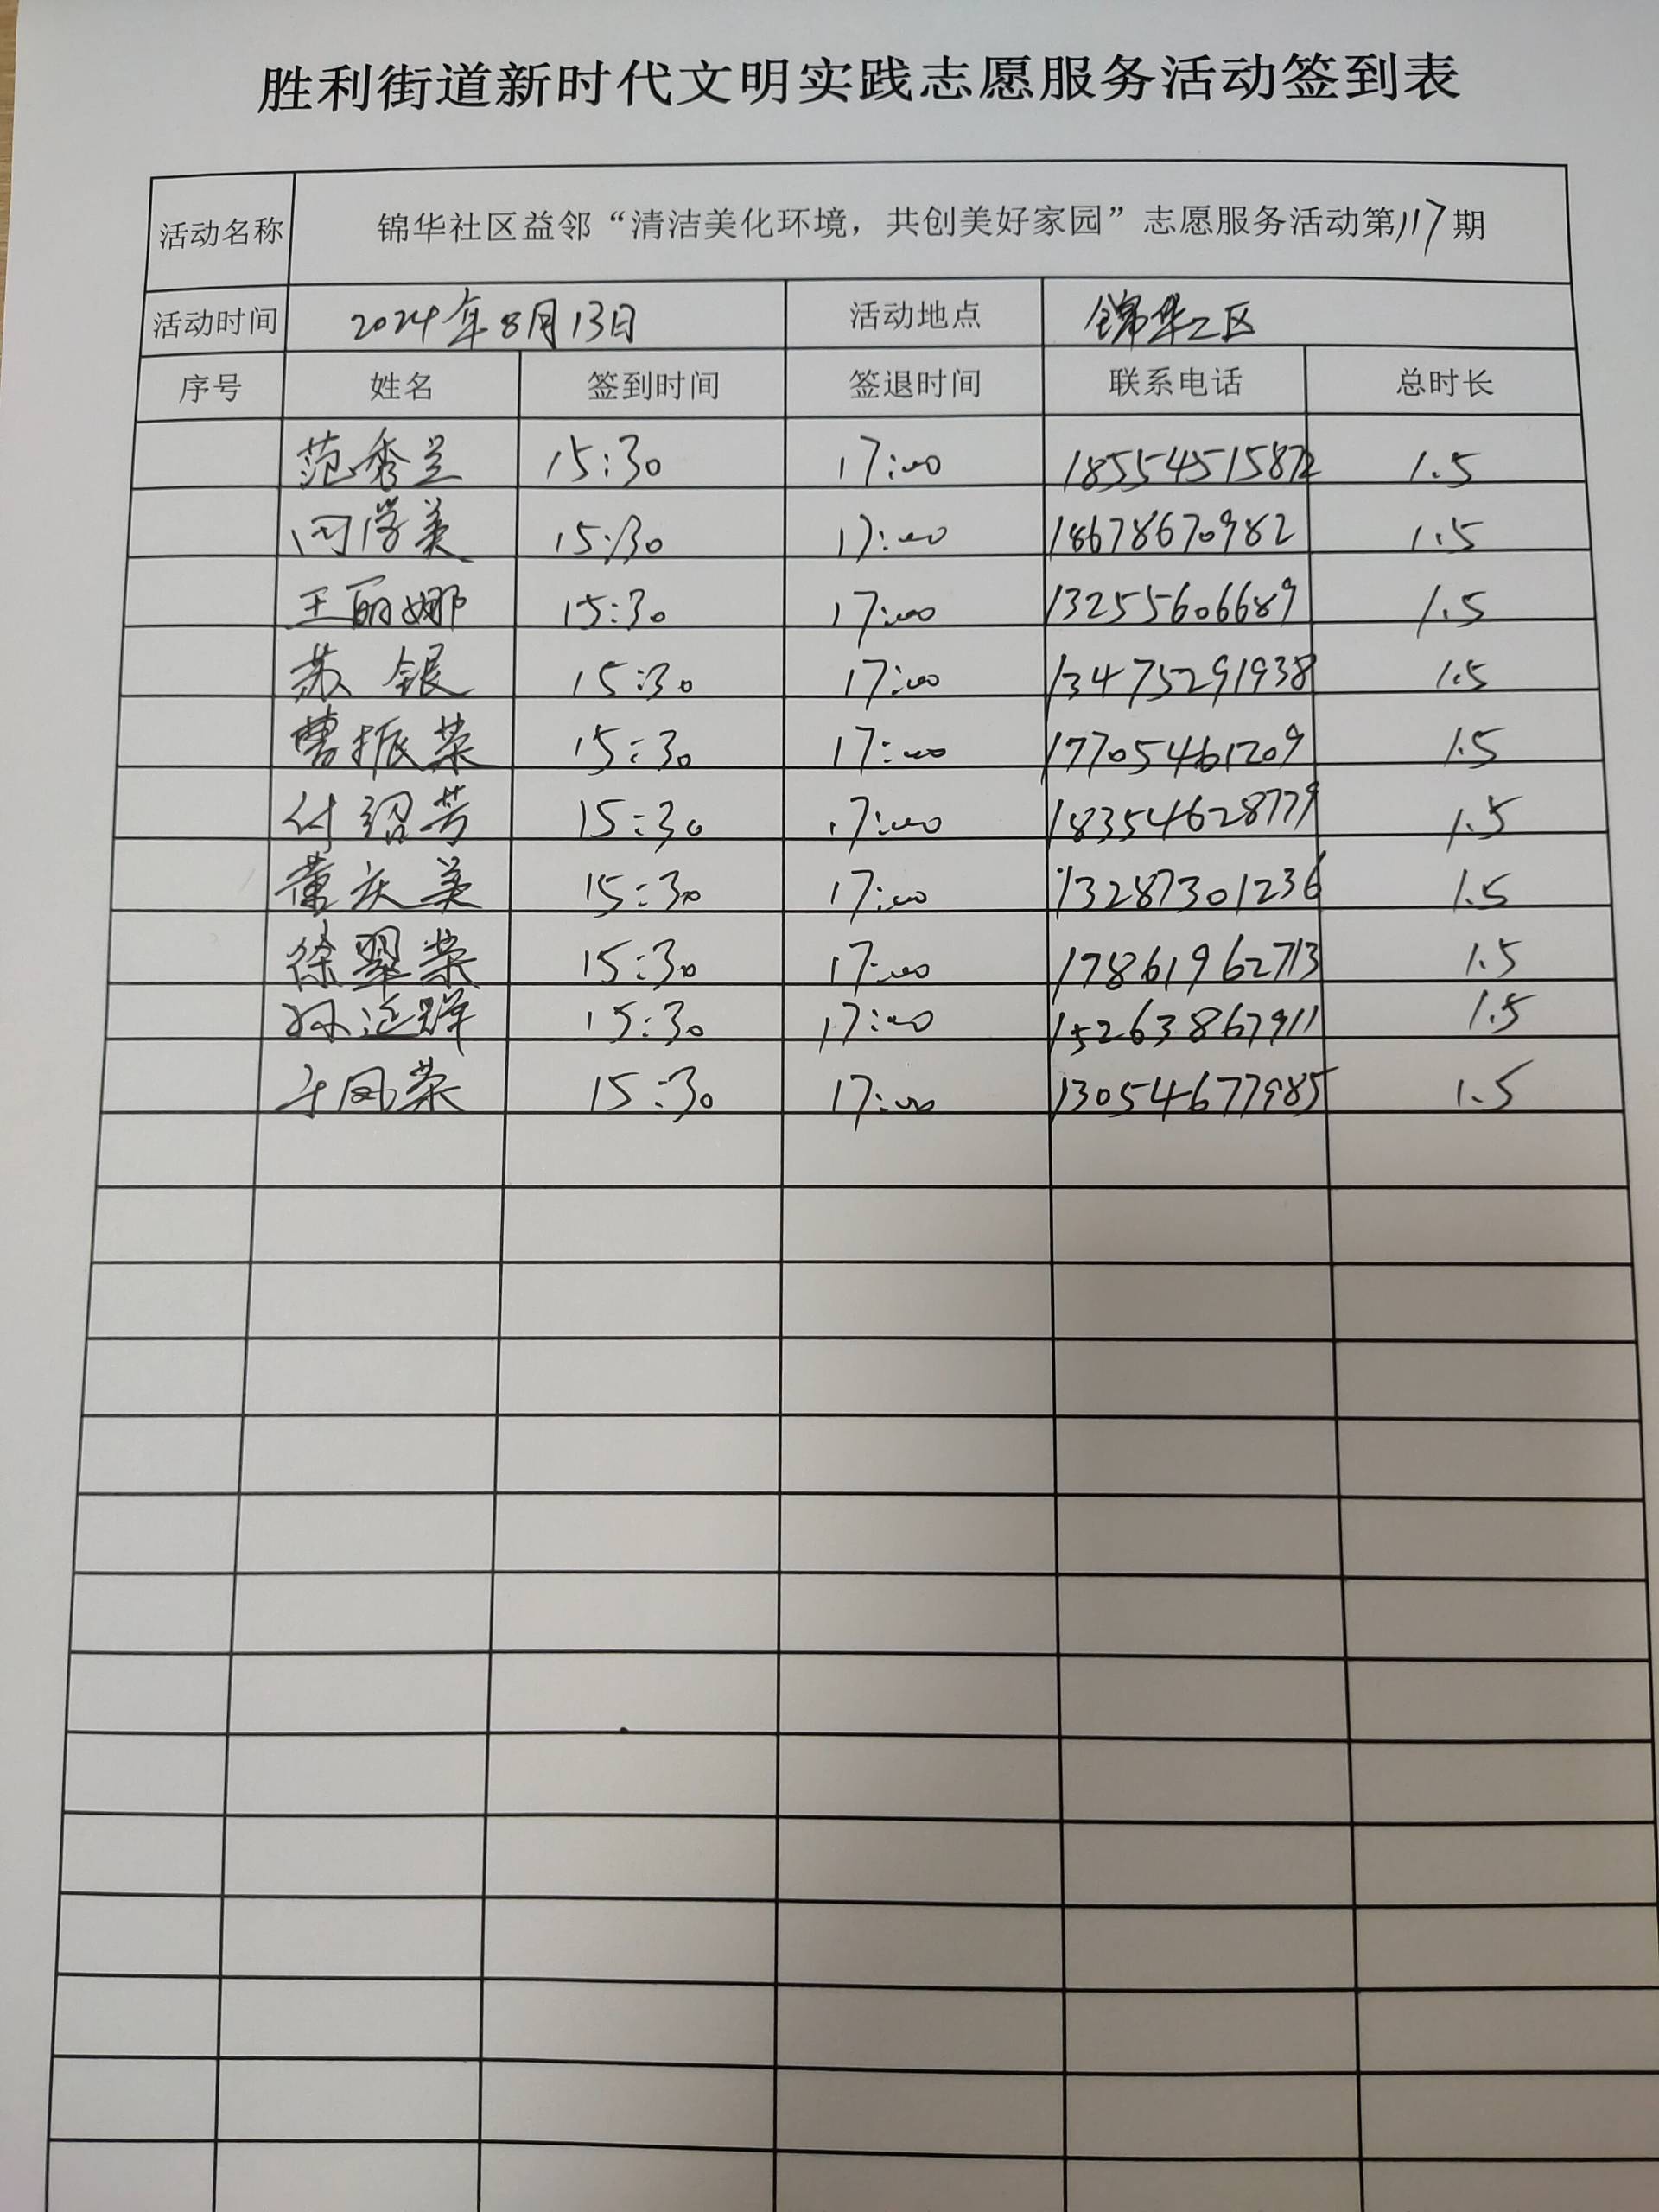 胜利街道新时代文明实践志愿服务活动签到表
活动名称 锦华社区益邻“清洁美化环境，共创美好家园”志愿服务活动第117期
活动时间 2024年8月13日 活动地点 锦华二区
序号 姓名 签到时间 签退时间 联系电话 总时长
范秀兰 15:30 17:00 18554515872 1.5
闫学美 15:30 17:00 18678670982 1.5
王丽娜 15:30 17:00 13255606689 1.5
苏银 15:30 17:00 13475291938 1.5
曹振荣 15:30 17:00 17705461209 1.5
付绍芳 15:30 17:00 18354628779 1.5
董庆美 15:30 17:00 13287301236 1.5
徐翠荣 15:30 17:00 17861962713 1.5
孙延祥 15:30 17:00 15263867911 1.5
于凤荣 15:30 17:00 13054677985 1.5